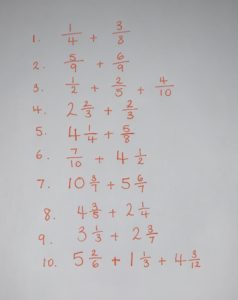 1. 1/4 + 3/8
2. 5/9 + 6/9
3. 1/2 + 2/5 + 4/10
4. 2 2/3 + 2/3
5. 4 1/4 + 5/8
6. 7/10 + 4 1/2
7. 10 3/7 + 5 6/7
8. 4 3/5 + 2 1/4
9. 3 1/3 + 2 3/7
10. 5 2/6 + 1 1/3 + 4 3/12